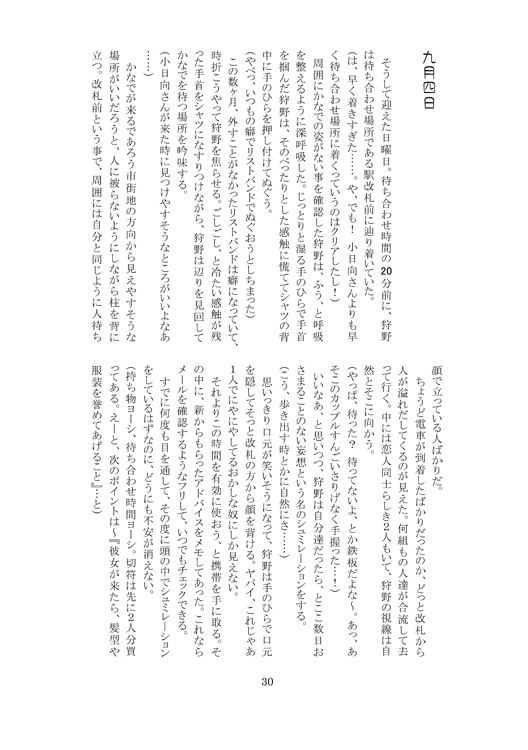 九月四日
　そうして迎えた日曜日。待ち合わせ時間の20分前に、狩野
は待ち合わせ場所である駅改札前に辿り着いていた。
（は、早く着きすぎた……。や、でも！　小日向さんよりも早
く待ち合わせ場所に着くっていうのはクリアしたし！）
　周囲にかなでの姿がない事を確認した狩野は、ふう、と呼吸
を整えるように深呼吸した。じっとりと湿る手のひらで手首
を掴んだ狩野は、そのべったりとした感触に慌ててシャツの背
中に手のひらを押し付けてぬぐう。
（やべっ、いつもの癖でリストバンドでぬぐおうとしちまった）
　この数ヶ月、外すことがなかったリストバンドは癖になっていて、
時折こうやって狩野を焦らせる。ごしごし、と冷たい感触が残
った手首をシャツになすりつけながら、狩野は辺りを見回して
かなでを待つ場所を吟味する。
（小日向さんが来た時に見つけやすそうなところがいいよなあ
……）
　かなでが来るであろう市街地の方向から見えやすそうな
場所がいいだろうと、人に被らないようにしながら柱を背に
立つ。改札前という事で、周囲には自分と同じように人待ち
顔で立っている人ばかりだ。
　ちょうど電車が到着したばかりだったのか、どっと改札から
人が溢れだしてくるのが見えた。何組もの人達が合流して去
って行く。中には恋人同士らしき2人もいて、狩野の視線は自
然とそこに向かう。
（やっぱ、待った？　待ってないよ、とか鉄板だよな～。あっ、あ
そこのカップルすんごいさりげなく手握った…！）
　いいなあ、と思いつつ、狩野は自分達だったら、とここ数日お
さまることのない妄想という名のシュミレーションをする。
（こう、歩き出す時とかに自然にさ……）
　思いっきり口元が笑いそうになって、狩野は手のひらで口元
を隠してそっと改札の方から顔を背ける。ヤバイ、これじゃあ
1人でにやにやしてるおかしな奴にしか見えない。
　それよりこの時間を有効に使おう、と携帯を手に取る。そ
の中に、新からもらったアドバイスをメモしてあった。これなら
メールを確認するようなフリして、いつでもチェックできる。
　すでに何度も目を通して、その度に頭の中でシュミレーション
をしているはずなのに、どうにも不安が消えない。
（持ち物ヨーシ、待ち合わせ時間ヨーシ。切符は先に2人分買
ってある。えーと、次のポイントは～『彼女が来たら、髪型や
服装を誉めてあげること』…と）
30